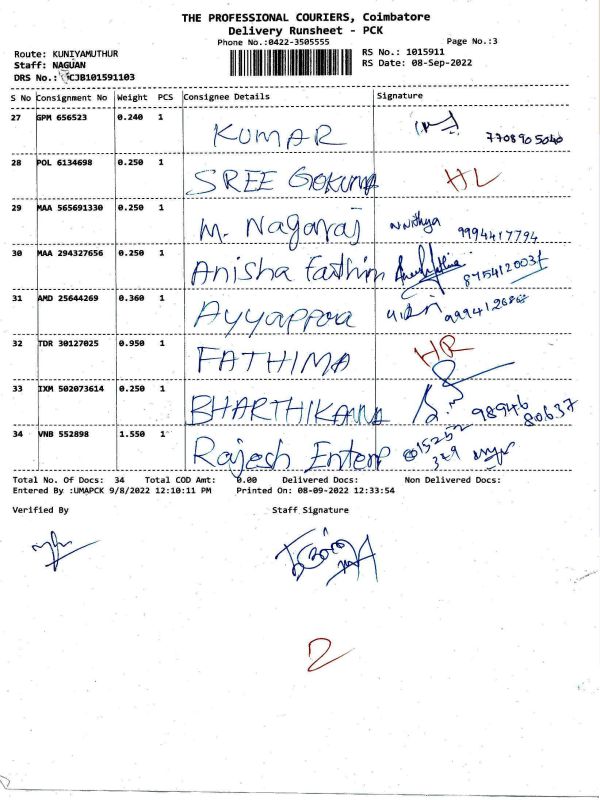 THE PROFESSIONAL COURIERS, Coimbatore
Delivery Runsheet - PCK
Phone No.:0422-3505555
Page No.:3
Route: KUNIYAMUTHUR
RS No.: 1015911
Staff: NAGUAN
RS Date: 08-Sep-2022
DRS No.: CJB101591103
S No Consignment No Weight PCS Consignee Details Signature
27 GPM 656523 0.240 1 KUMAR 7708905040
28 POL 6134698 0.250 1 SREE GOKUNA HL
29 MAA 565691330 0.250 1 M. Nagaraj Nithya 9994417794
30 MAA 294327656 0.250 1 Anisha Fathim
31 AMD 25644269 0.360 1 Ayyappaa
32 TDR 30127025 0.950 1 FATHIMA HR
33 IXM 502073614 0.250 1 BHARTHIKANNA 98946 80637
34 VNB 552898 1.550 1 Rajesh Enterp
Total No. Of Docs: 34 Total COD Amt: 0.00 Delivered Docs: Non Delivered Docs:
Entered By :UMAPCK 9/8/2022 12:10:11 PM Printed On: 08-09-2022 12:33:54
Verified By Staff Signature
2